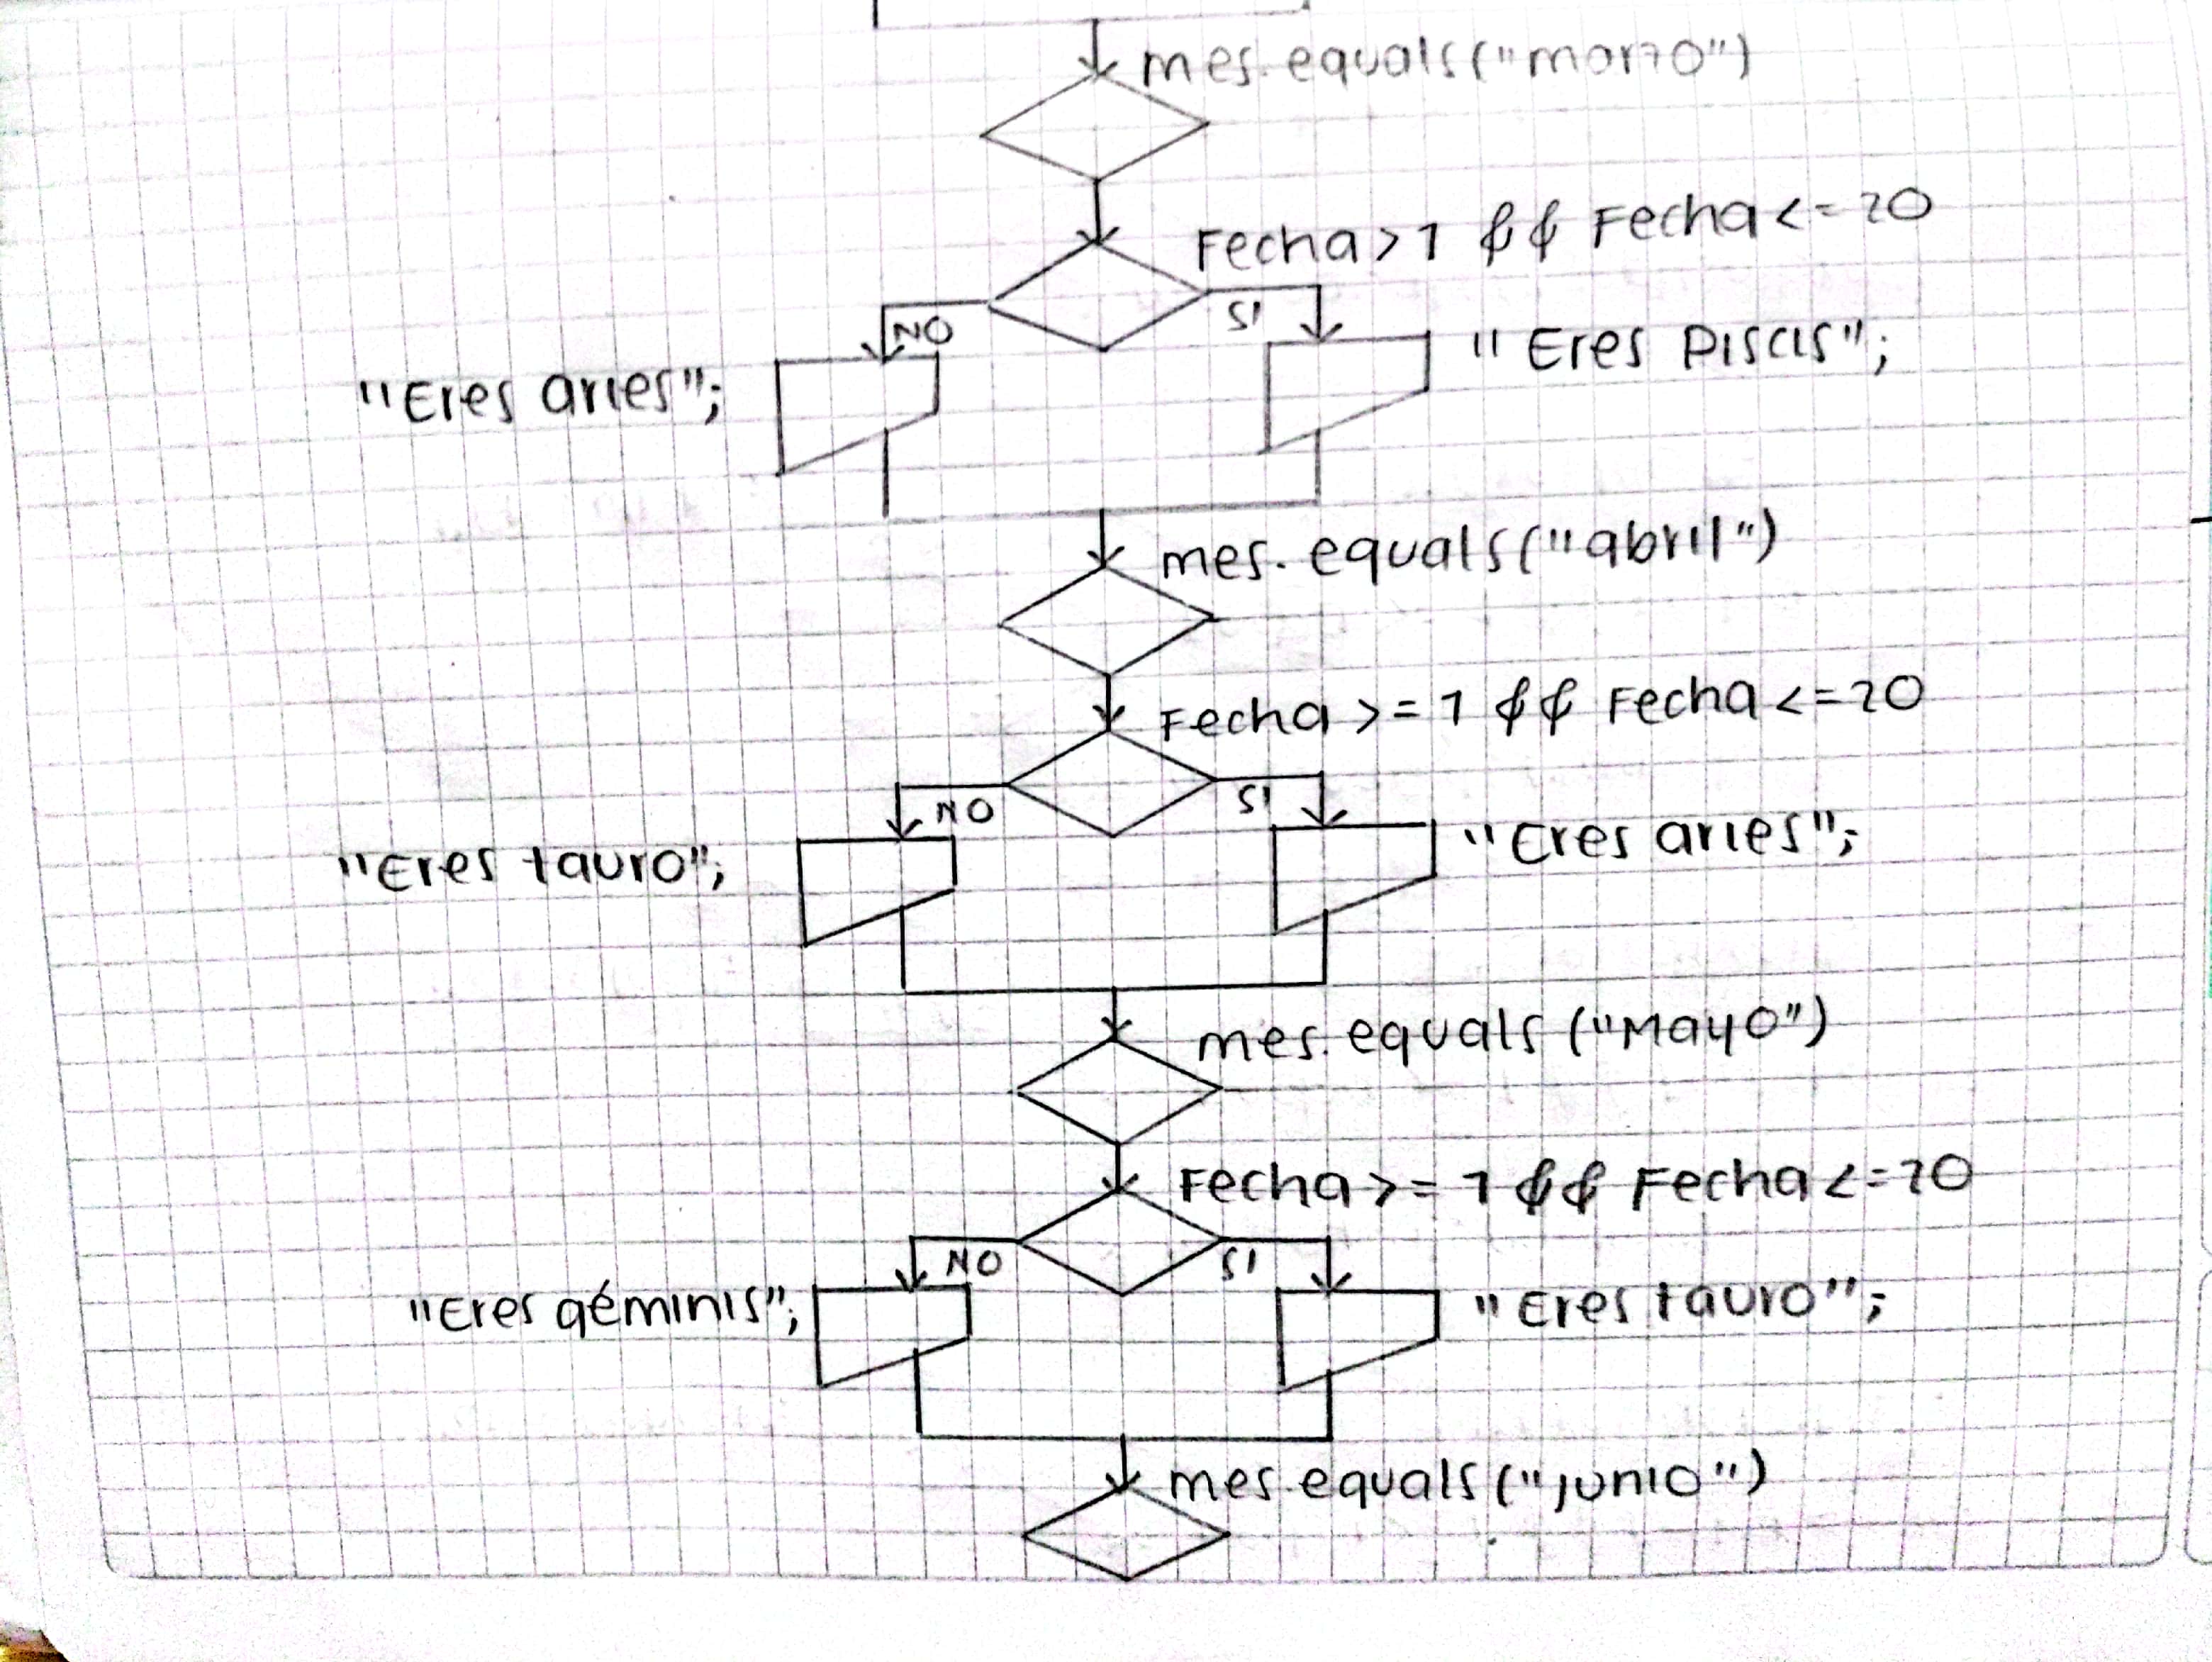 mes.equals("marzo")
Fecha>1 && Fecha<=20
NO
SI
"Eres Piscis";
"Eres aries";
mes.equals("abril")
Fecha>=1 && Fecha<=20
NO
SI
"Eres aries";
"Eres tauro";
mes.equals("Mayo")
Fecha>=1 && Fecha<=20
NO
SI
"Eres géminis";
"Eres tauro";
mes.equals("junio")